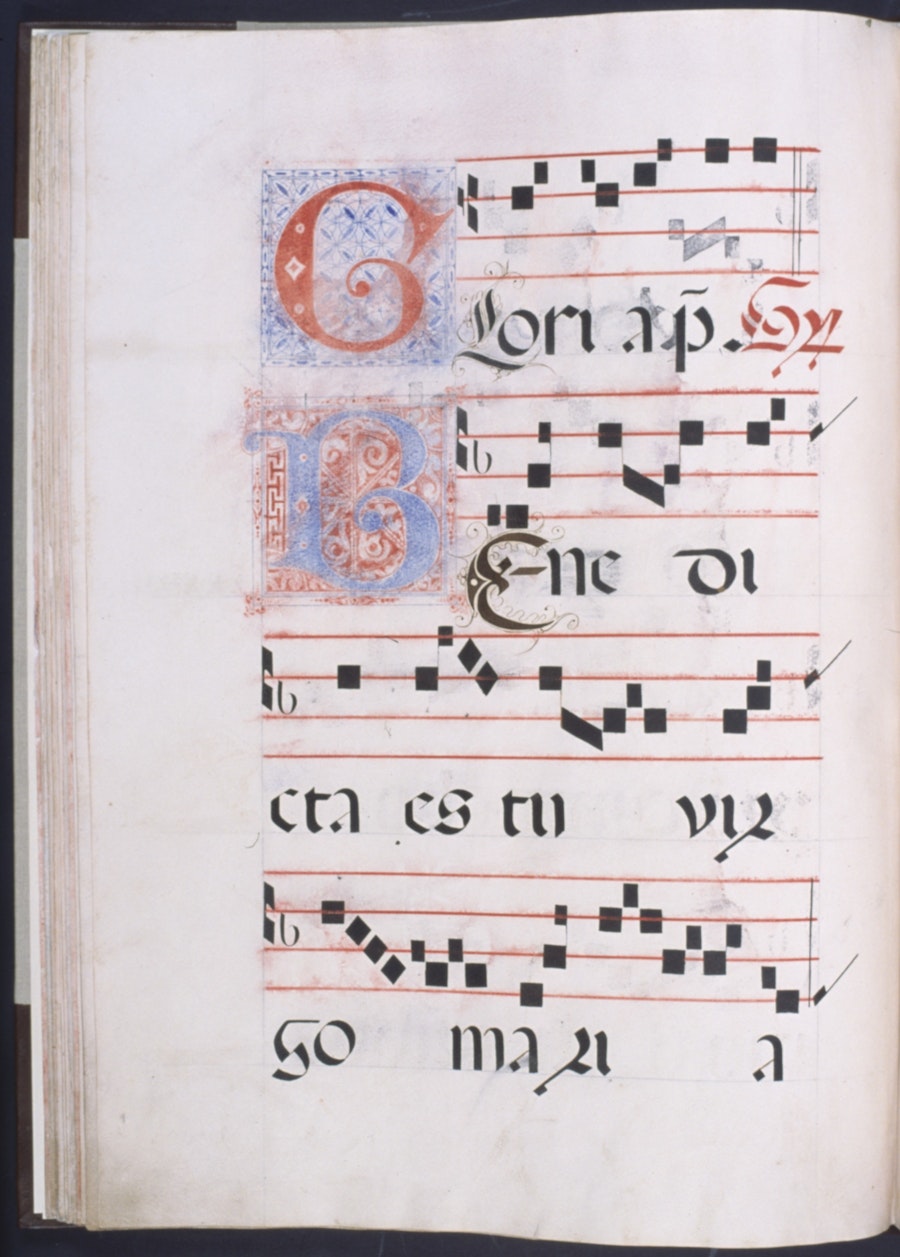 GLori a p̃. Gr̃
BE-ne di
cta es tu vir
go mari a